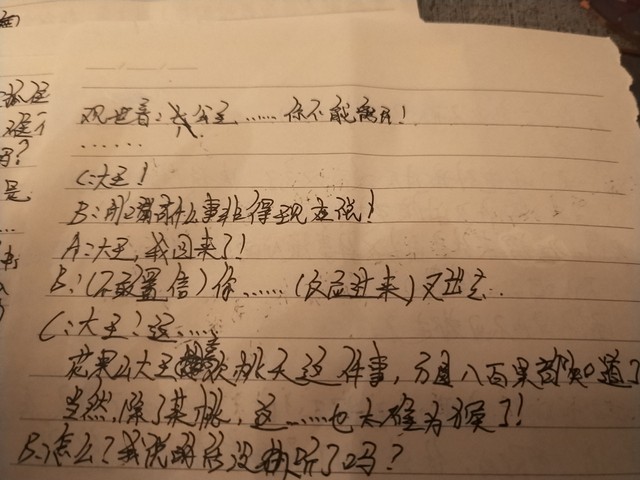 观世音:公主……你不能离开!
……
C:大王!
B:有什么事非得现在说!
A:大王,我回来了!
B:(不敢置信)你……(反应过来)又出去..
C:大王!这……
花果山大王喜欢桃夭这件事,方圆八百里都知道了
当然,除了某桃,这……也太难为猴了!
B:怎么?我说的话没听了吗?
吗?
是